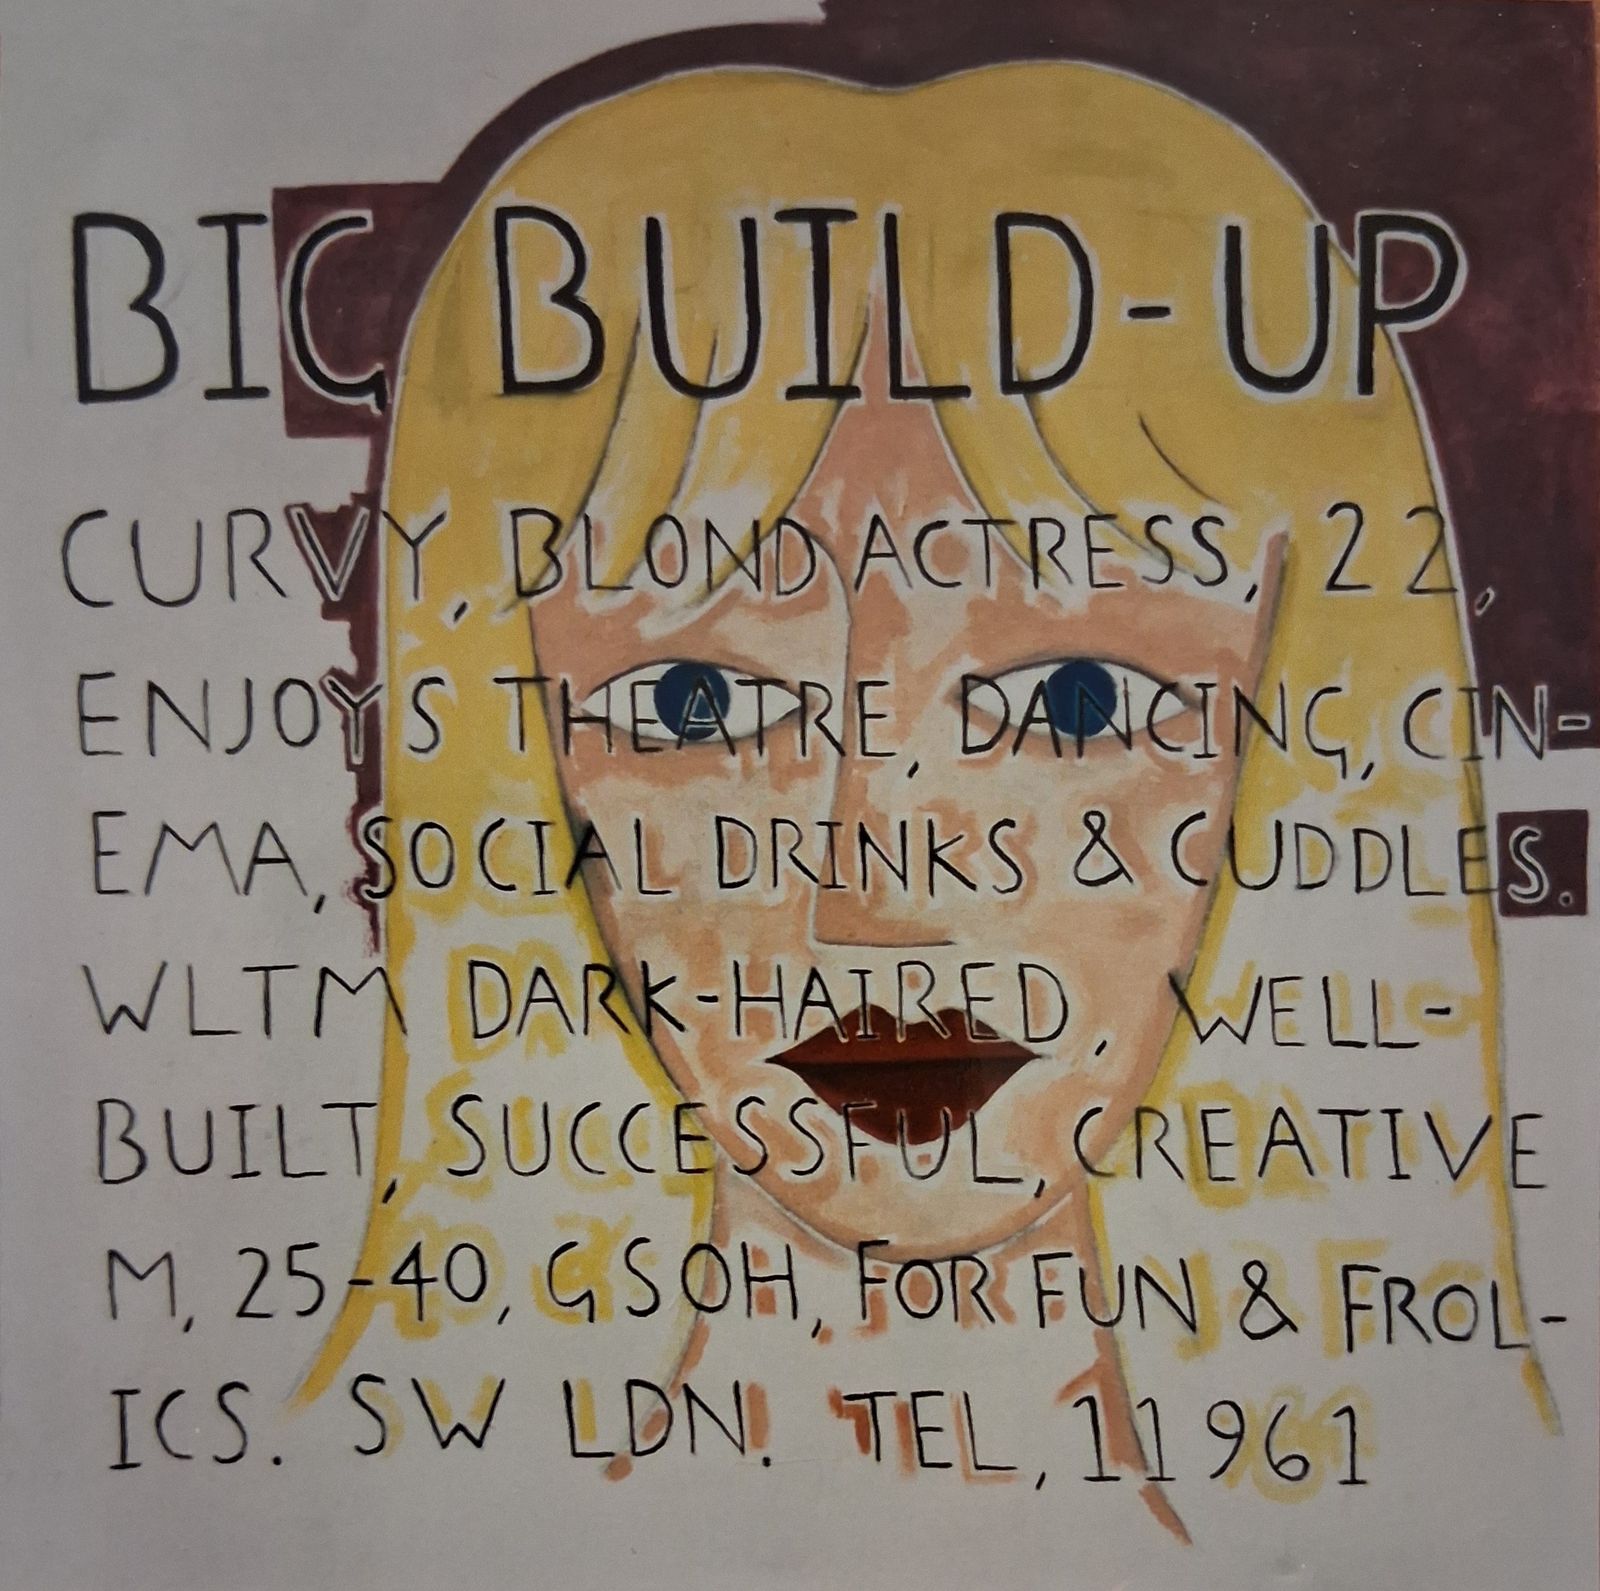 BIG BUILD-UP
CURVY, BLOND ACTRESS, 22,
ENJOYS THEATRE, DANCING, CIN-
EMA, SOCIAL DRINKS & CUDDLES.
WLTM DARK-HAIRED, WELL-
BUILT, SUCCESSFUL, CREATIVE
M, 25-40, GSOH, FOR FUN & FROL-
ICS. SW LDN. TEL, 11961